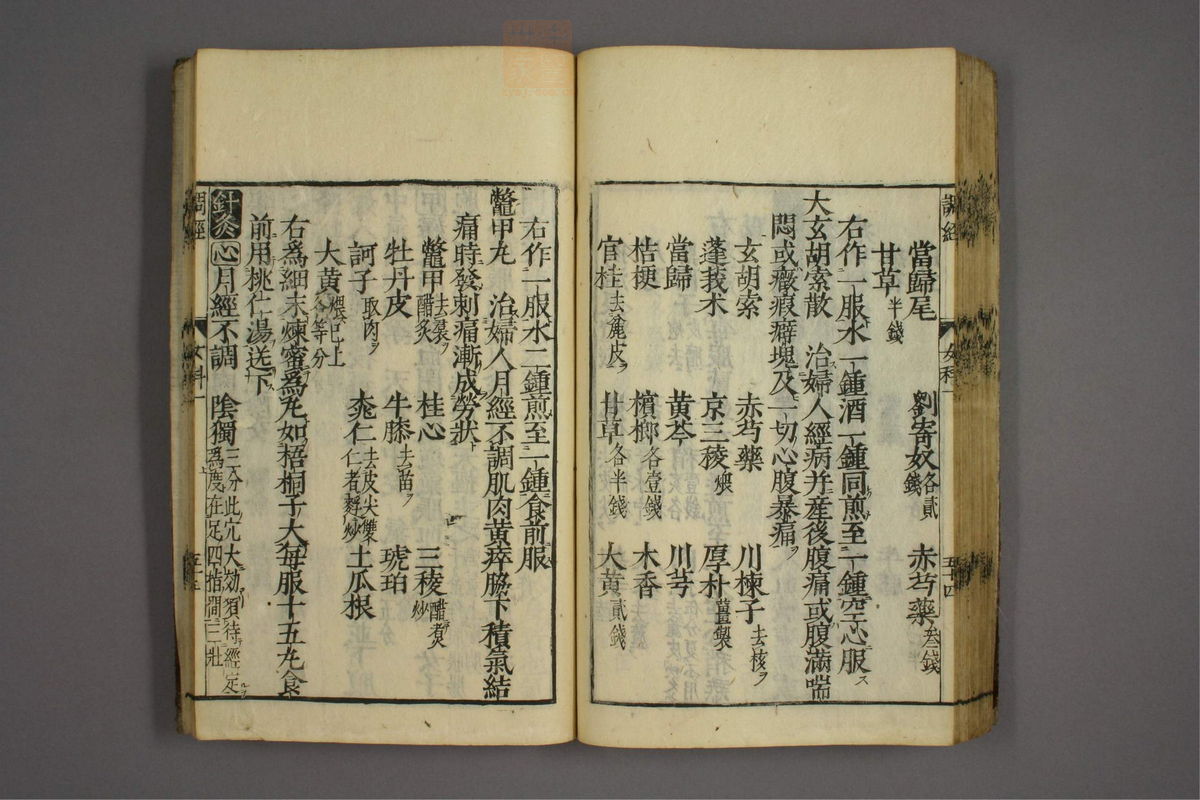 調經
女科一
五十四
當歸尾　劉寄奴各貳錢　赤芍藥叁錢
甘草半錢
右作一服水一鍾酒一鍾同煎至一鍾空心服ス
大玄胡索散　治婦人經病并産後腹痛或腹滿喘
悶或癥瘕癖塊及一切心腹暴痛ヲ
玄胡索　赤芍藥　川楝子去核ヲ
蓬莪朮　京三稜煨　厚朴薑製
當歸　黄芩　川芎
桔梗　檳榔各壹錢　木香
官桂去麁皮ヲ　甘草各半錢　大黄貳錢
右作一服水二鍾煎至一鍾食前服
鼈甲丸　治婦人月經不調肌肉黄瘁脇下積氣結
痛時發刺痛漸成勞狀
鼈甲去裏ヲ醋炙　桂心　三稜醋煮炒
牡丹皮　牛膝去苗ヲ　琥珀
訶子取肉ヲ　桃仁去皮尖雙仁者麩炒　土瓜根
大黄煨已上各等分
右爲細末煉蜜爲丸如梧桐子大每服十五丸食
前用桃仁湯送下
針灸心月經不調　陰獨三分此穴大効須待經定爲度在足四指間三壯
調經
女科一